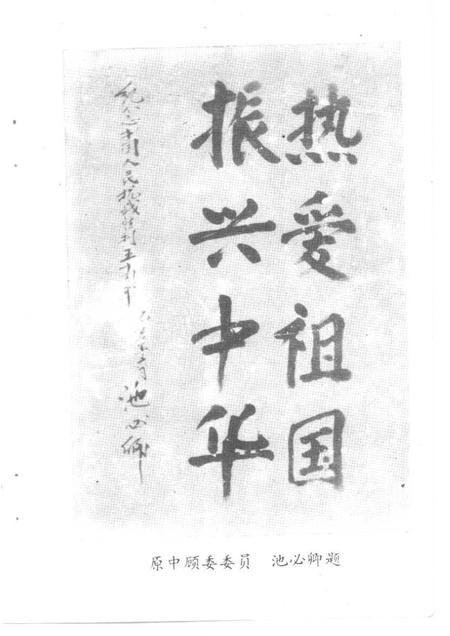 热爱祖国
振兴中华
纪念中国人民抗战胜利五十年
池必卿
原中顾委委员 池必卿题